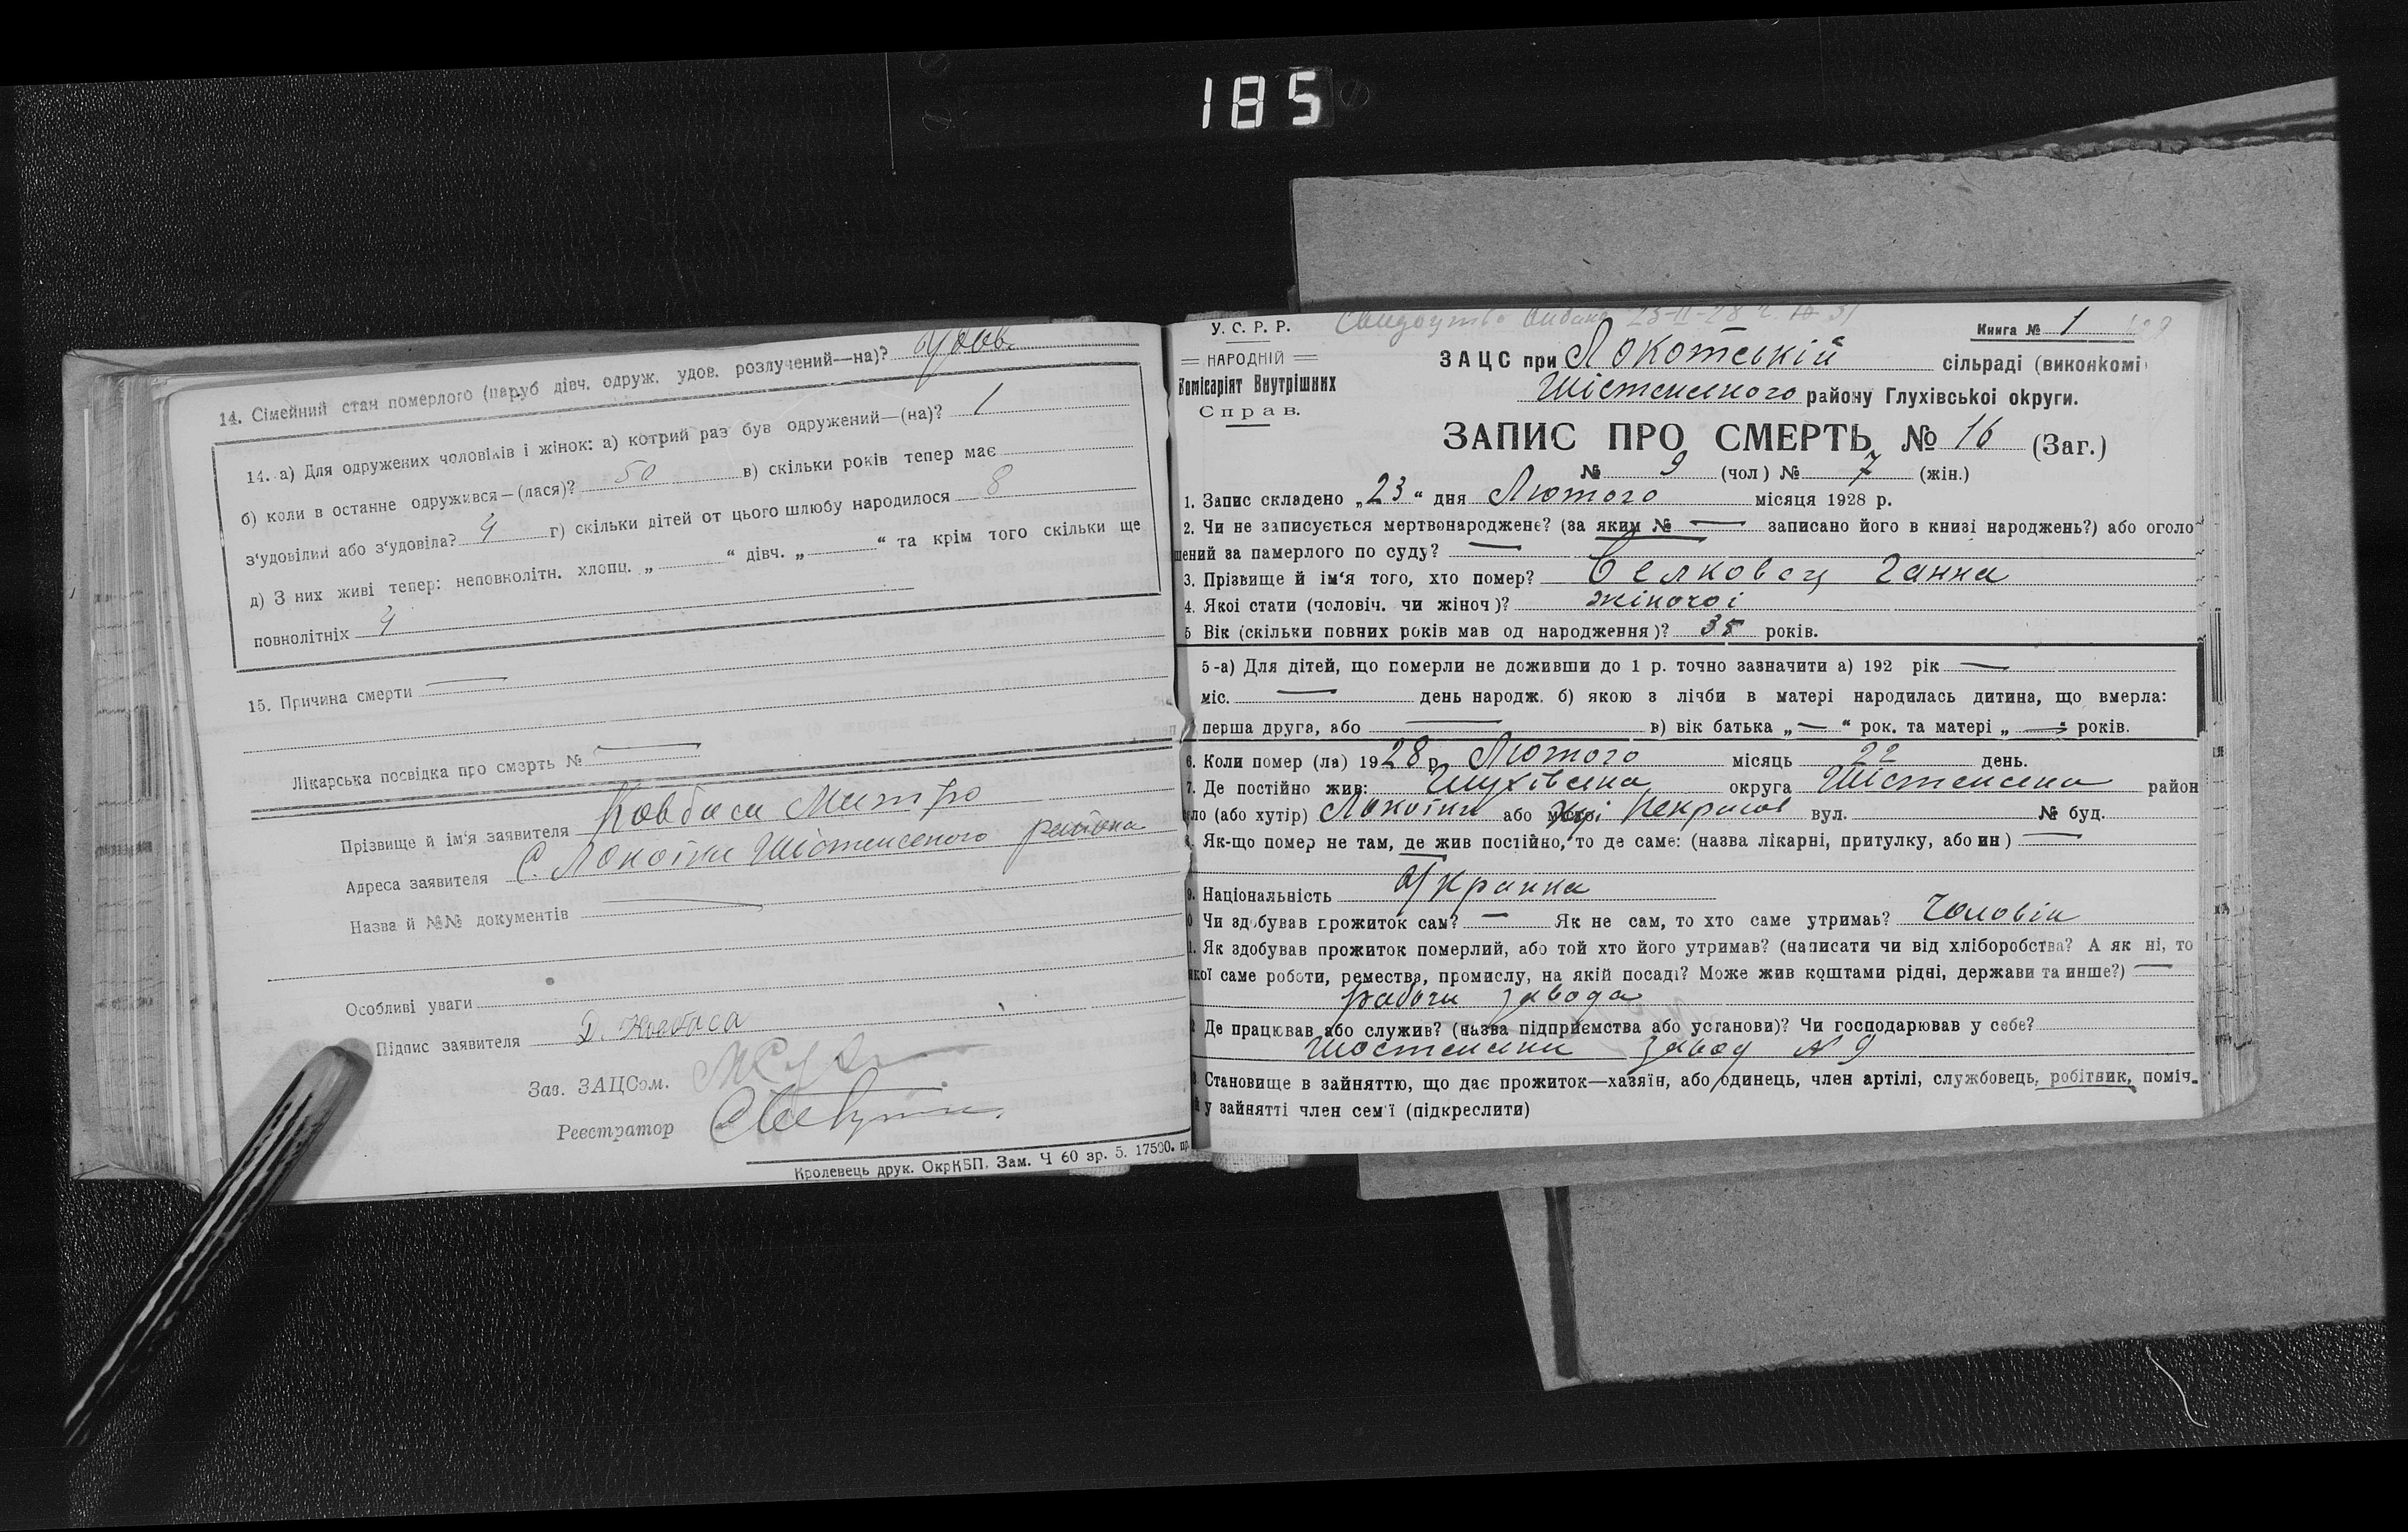 185
14. Сімейний стан померлого (паруб дівч. одруж. удов. розлучений—на)? Удов.
14. а) Для одружених чоловіків і жінок: а) котрий раз був одружений—(на)? 1
б) коли в останне одружився—(лася)? 50 в) скільки років тепер має
з'удовілий або з'удовіла? 4 г) скільки дітей от цього шлюбу народилося 8
д) З них живі тепер: неповнолітн. хлопц. „ “ дівч. „ “ та крім того скільки ще
повнолітніх 4
15. Причина смерти —
Лікарська посвідка про смерть № —
Прізвище й ім'я заявителя Ковбаса Митро
Адреса заявителя С. Локотки Шістенського района
Назва й №№ документів —
Особливі уваги
Підпис заявителя Д. Ковбаса
Зав. ЗАЦСом.
Реєстратор
Кролевець друк. ОкрКБП. Зам. Ч 60 зр. 5. 17500. пр
У. С. Р. Р.
Свидоцтво видано 23-II-28 31
Книга № 1
НАРОДНІЙ
Комісаріят Внутрішних
Справ.
ЗАЦС при Локотській сільраді (виконкомі
Шістенського району Глухівської округи.
ЗАПИС ПРО СМЕРТЬ № 16 (Заг.)
№ 9 (чол) № 7 (жін.)
1. Запис складено „23“ дня Лютого місяця 1928 р.
2. Чи не записується мертвонароджене? (за яким № — записано його в книзі народжень?) або оголо
шений за памерлого по суду? —
3. Прізвище й ім'я того, хто помер? Белковец Ганна
4. Якоі стати (чоловіч. чи жіноч)? жіночоі
5 Вік (скільки повних років мав од народження)? 38 років.
5-а) Для дітей, що померли не доживши до 1 р. точно зазначити а) 192 рік —
міс. — день народж. б) якою з лічби в матері народилась дитина, що вмерла:
перша друга, або — в) вік батька „—“ рок. та матері „—“ років.
6. Коли помер (ла) 1928 р. Лютого місяць 22 день.
7. Де постійно жив: Глухівська округа Шістенська район
ло (або хутір) Локотки або Некрасов вул. № буд.
Як-що помер не там, де жив постійно, то де саме: (назва лікарні, притулку, або ин) —
9. Національність Украинка
0 Чи здобував прожиток сам? — Як не сам, то хто саме утримаь? Чоловік
1. Як здобував прожиток померлий, або той хто його утримав? (написати чи від хліборобства? А як ні, то
якої саме роботи, ремества, промислу, на якій посаді? Може жив коштами рідні, держави та инше?) —
рабочи завода
Де працював або служив? (назва підприємства або установи)? Чи господарював у себе?
Шостенськи завод № 9
Становище в зайняттю, що дає прожиток—хазяїн, або одинець, член артілі, службовець, робітник, поміч-
й у зайнятті член сем'ї (підкреслити)